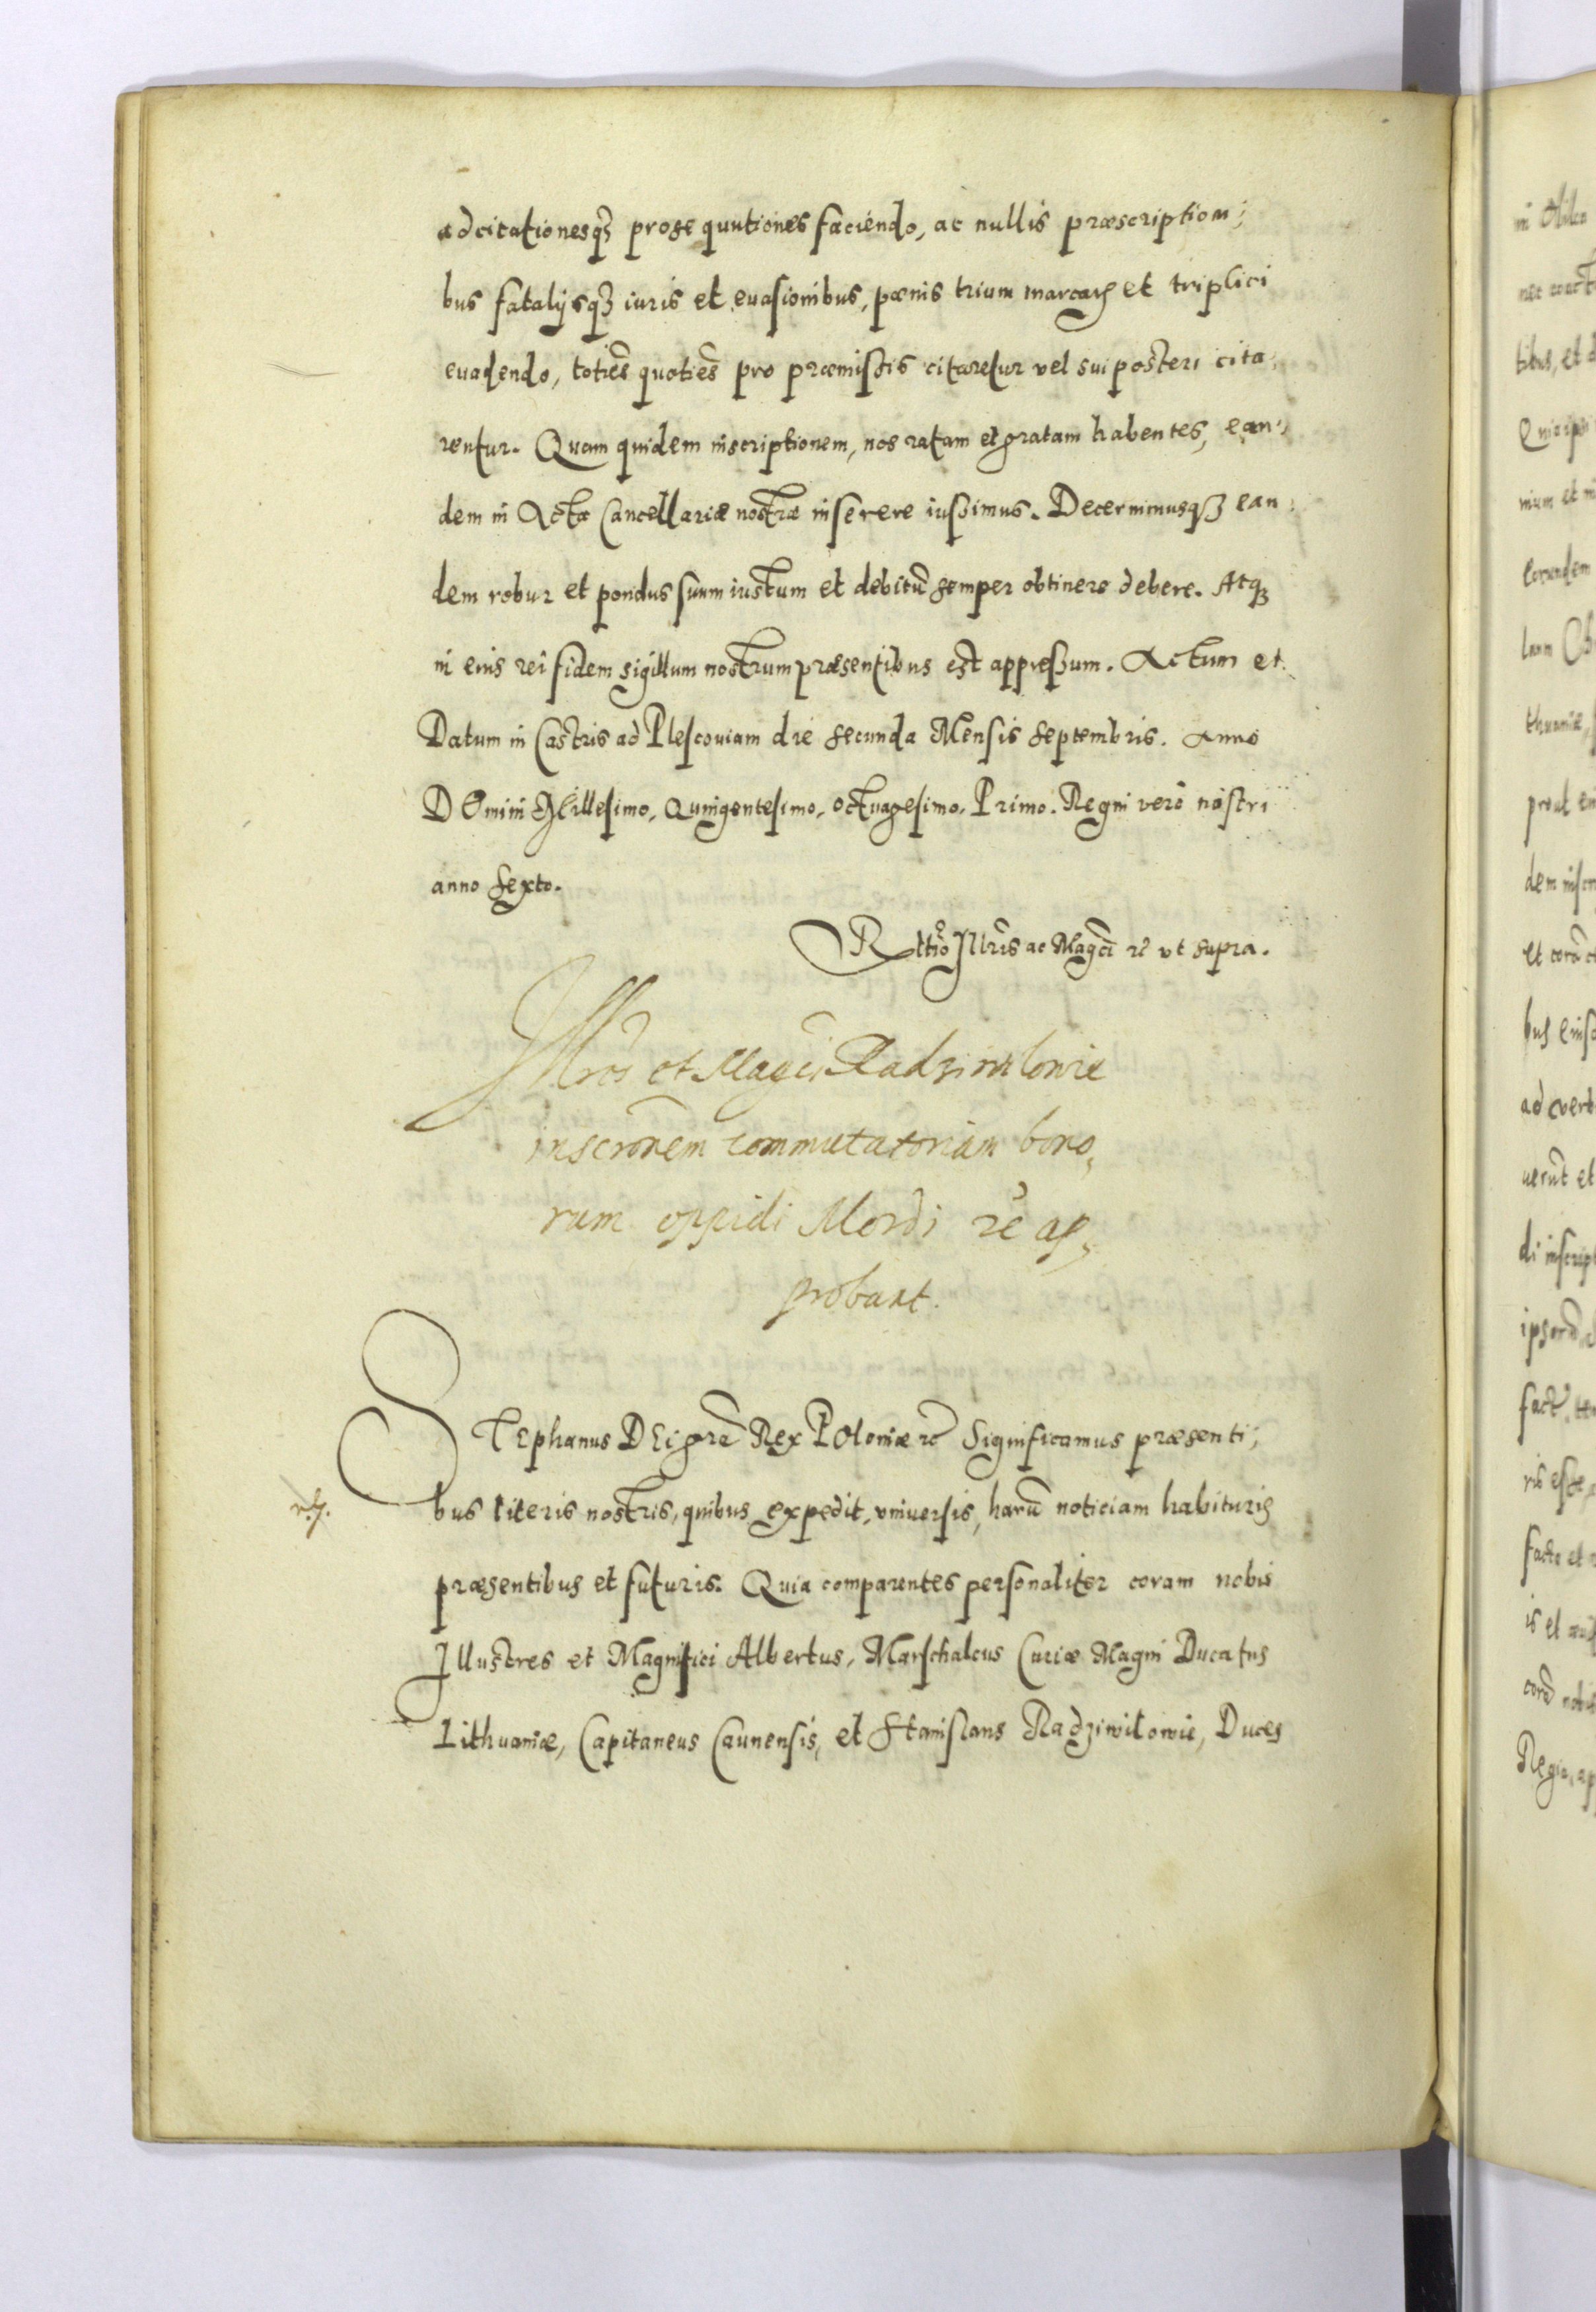 adcitationesq₃ prosequutiones faciendo, ac nullis præscriptioni;
bus fatalijsq₃ iuris et euasionibus, pœnis trium marcarꝝ et triplici
euadendo, toties̃ quoties̃ pro præmissis citaretur vel sui posteri cita,
rentur. Quam quidem inscriptionem, nos ratam et gratam habentes, ean,
dem in Acta Cancellariæ nostræ inserere iussimus. Decernimusq₃ ean,
dem robur et pondus suum iustum et debitũ semper obtinere debere. Atq₃
in eius rei fidem sigillum nostrum præsentibus est appressum. Actum et
Datum in Castris ad Plescouiam die secunda Mensis Septembris. Anno
DOmini Millesimo, Quingentesimo, octuagesimo, Primo. Regni verò nostri
anno sexto.
Rttio Illris ac Magci rc̃ vt supra.
Illres et Magci Radziwilowie
inscr̃onem commutatoriam bono,
rum oppidi Mordi rc̃ ap,
probant.
STEphanus DEi gr̃a Rex POloniæ rc̃ Significamus præsenti;
bus literis nostris, quibus expedit, vniuersis, harũ noticiam habituris
præsentibus et futuris. Quia comparentes personaliter coram nobis
Illustres et Magnifici Albertus, Marschalcus Curiæ Magni Ducatus
Lithuaniæ, Capitaneus Caunensis, et Stanislaus Radziwilowie, Duces